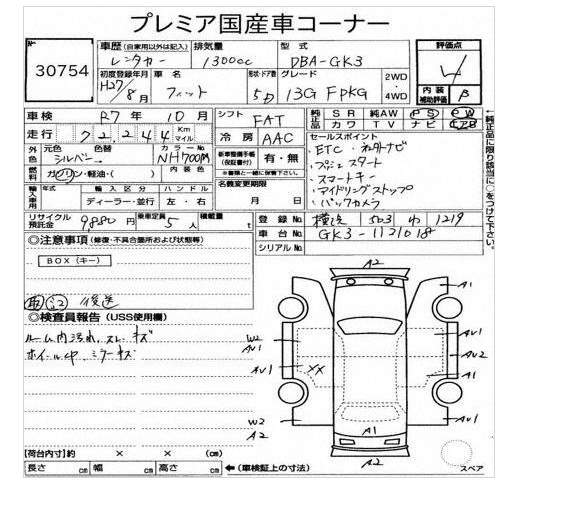 プレミア国産車コーナー
No.
30754
車歴 (自家用以外は記入) 排気量 型式
レンタカー 1300cc DBA-GK3
初度登録年月 車名 形状・ドア数 グレード
H27/8月 フィット 5D 13G FPKG
2WD
4WD
評価点
4
内装
補助評価 B
車検 R7年10月
走行 72,244 Km マイル
シフト FAT
冷房 AAC
純正品 SR 純AW PS PW
カワ TV ナビ エアB
外色 元色 色替 カラーNo.
シルバー NH700M
燃料 ガソリン・軽油・( )
新車整備手帳 (保証書付) 有・無
※書類と一緒に保管下さい。
名義変更期限
月 日
セールスポイント
・ETC・
・プッシュスタート
・スマートキー
・アイドリングストップ
・バックカメラ
←純正品に限り該当に○をつけて下さい。
輸入車用 年式 輸入区分 ハンドル
ディーラー・並行 左・右
リサイクル預託金 9,880円 乗車定員 5人 積載量 t
登録No. 横浜 503 わ 1219
車台No. GK3-1121018
シリアルNo.
○注意事項 (修復・不具合箇所および状態等)
BOX (キー)
取 記 後送
○検査員報告 (USS使用欄)
ルーム内汚れ、スレ、キズ
ホイールcap、ミラーキズ
A2
A1
W2
AV1
AV1
AV2
AV1
XX
A1
W2
A2
AV1
A1
A2
スペア
【荷台内寸】約 × × (cm)
長さ cm 幅 cm 高さ cm ←(車検証上の寸法)